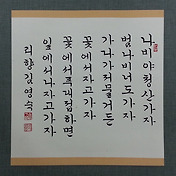 나비야청산가자
범나비너도가자
가다가저물거든
꽃에서자고가자
꽃에서푸대접하면
잎에서나자고가자
리향김영숙